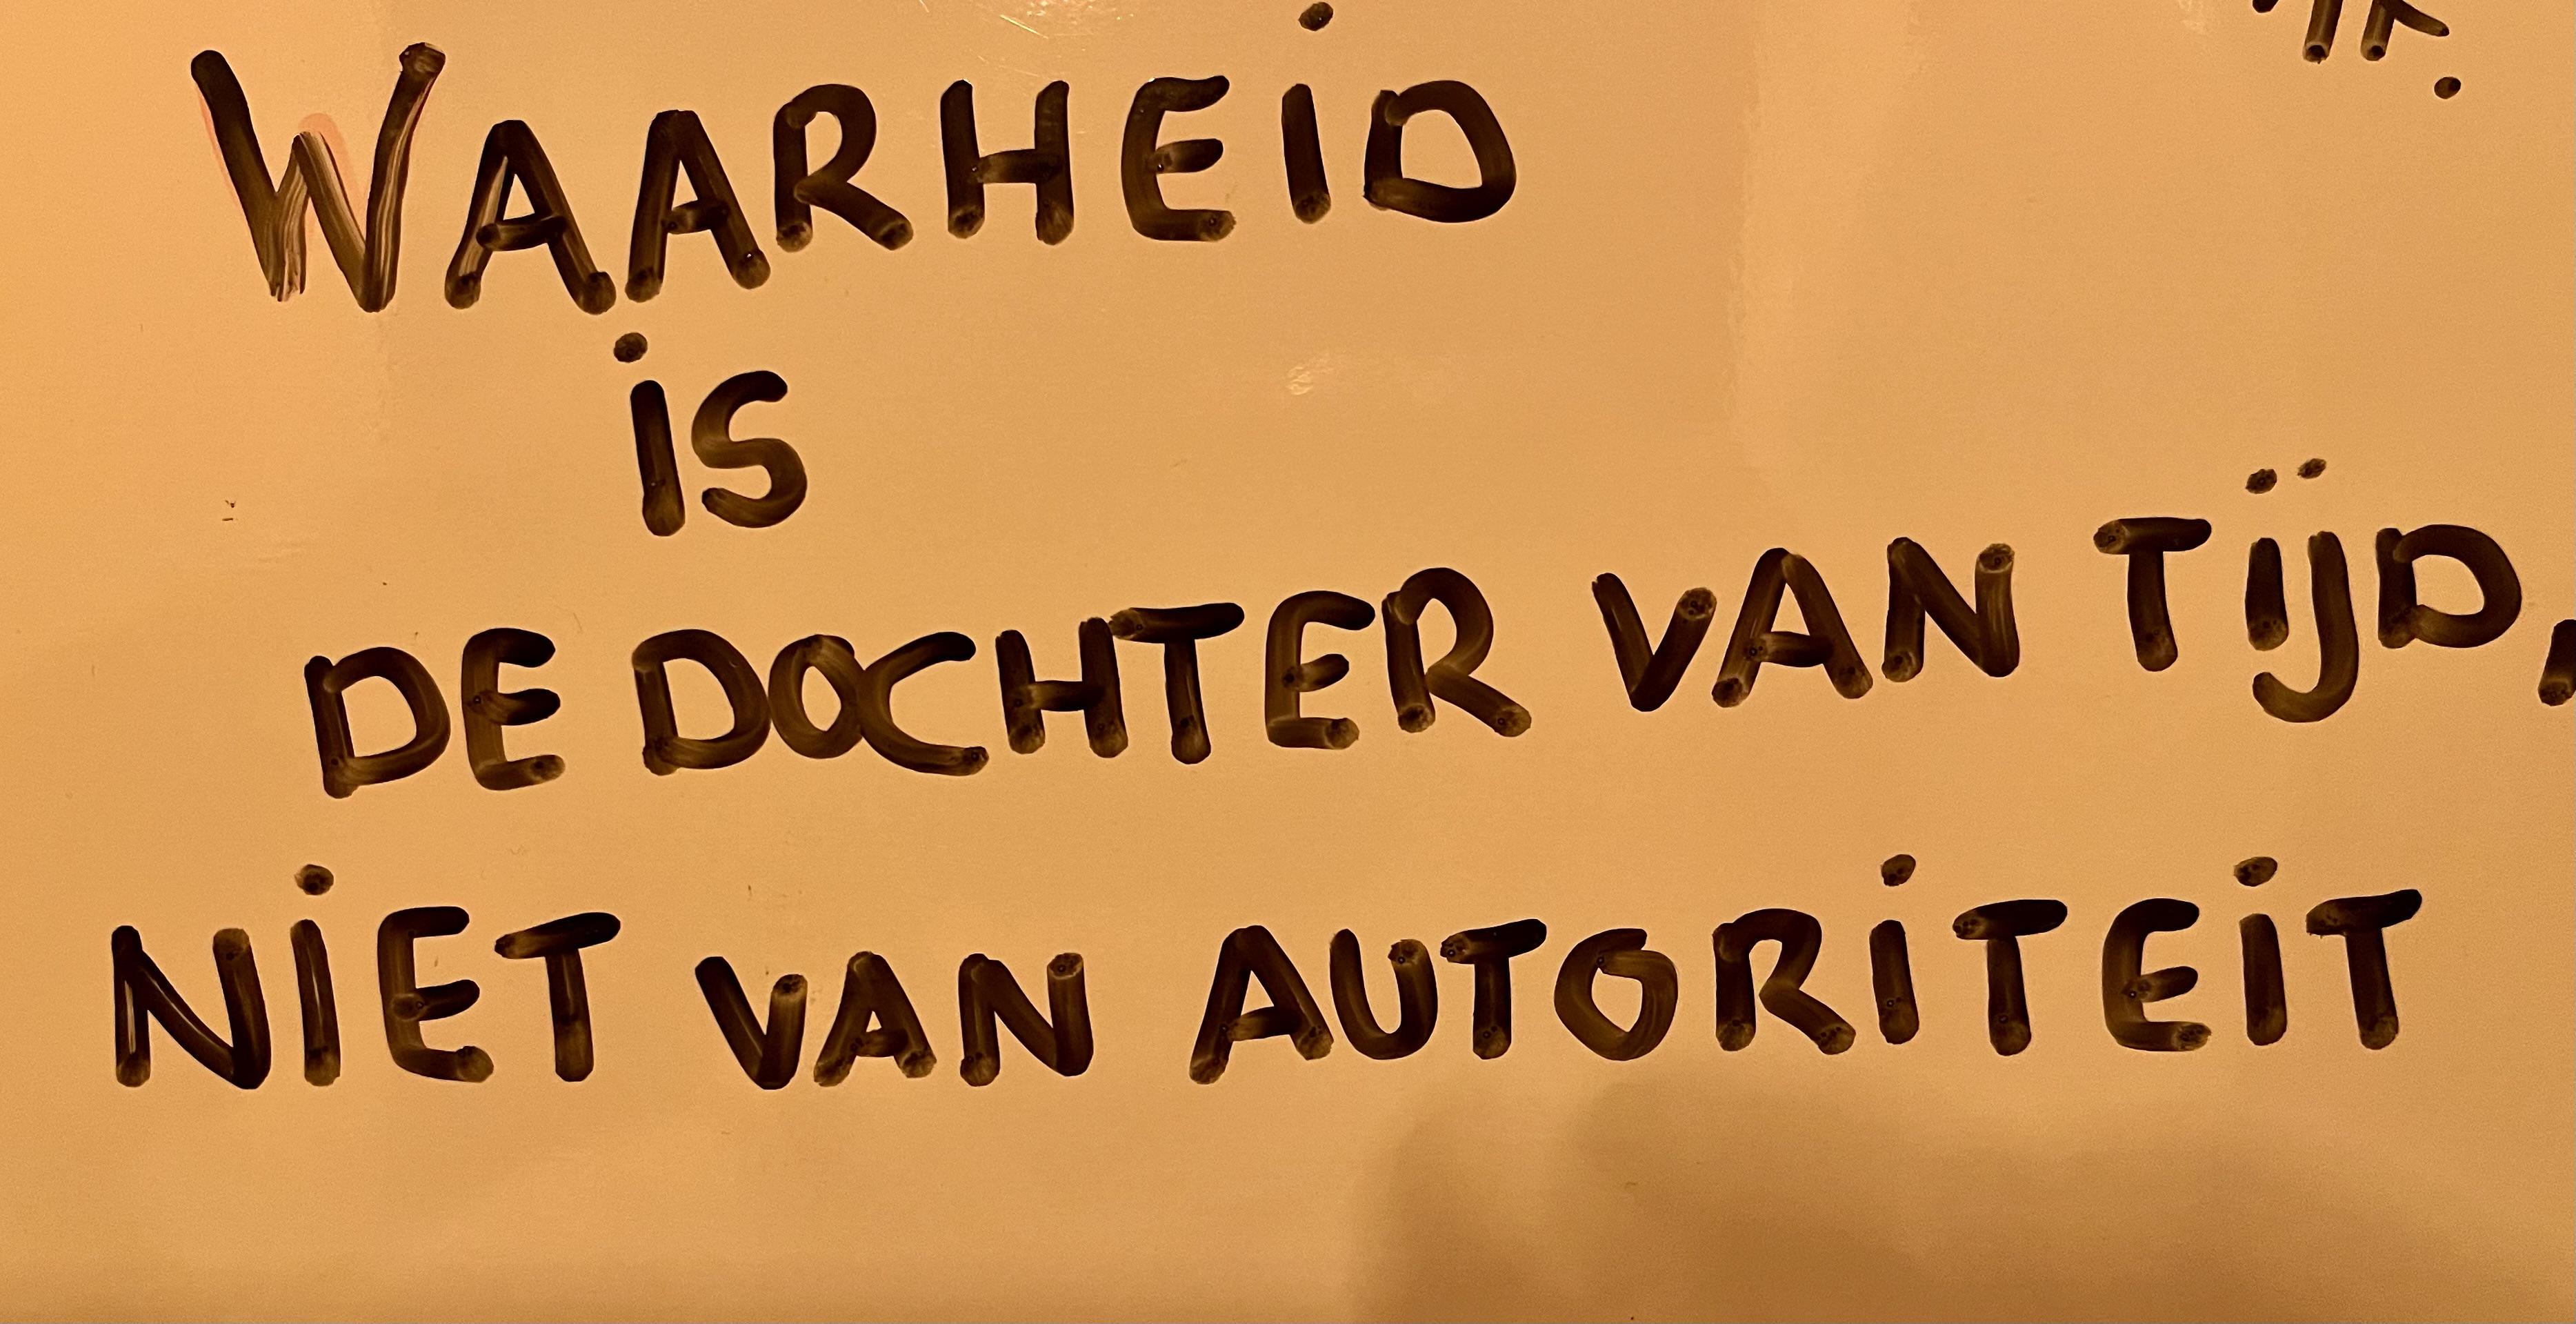 WAARHEID
iS
DE DOCHTER VAN TIJD,
NIET VAN AUTORITEIT